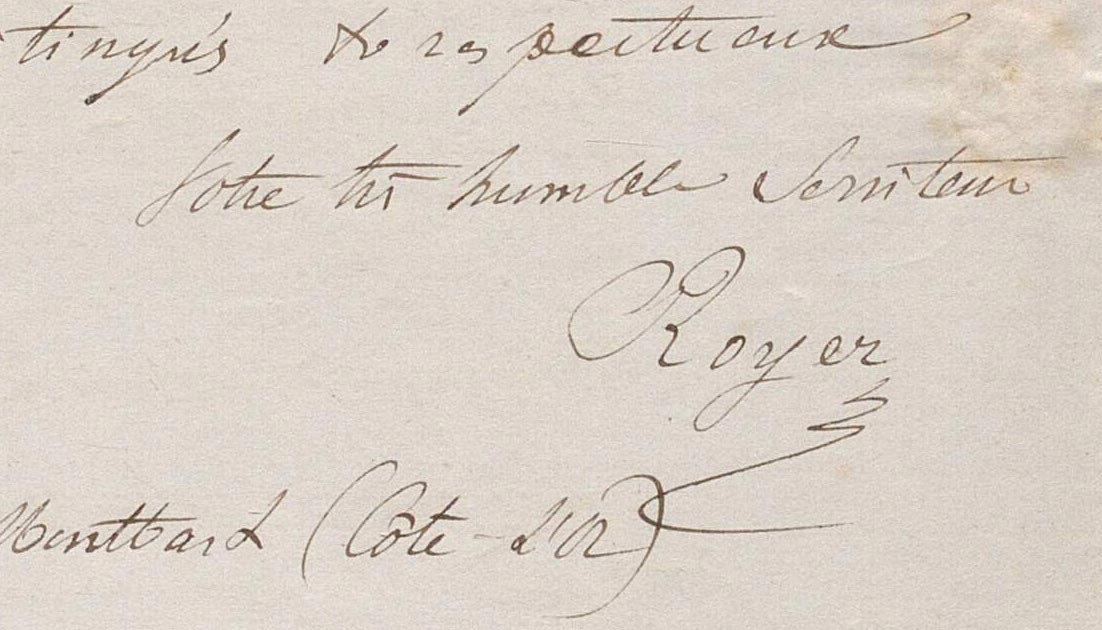 tingués & respectueux
Votre très humble Serviteur
Royer
Montbard (Côte-d'Or)